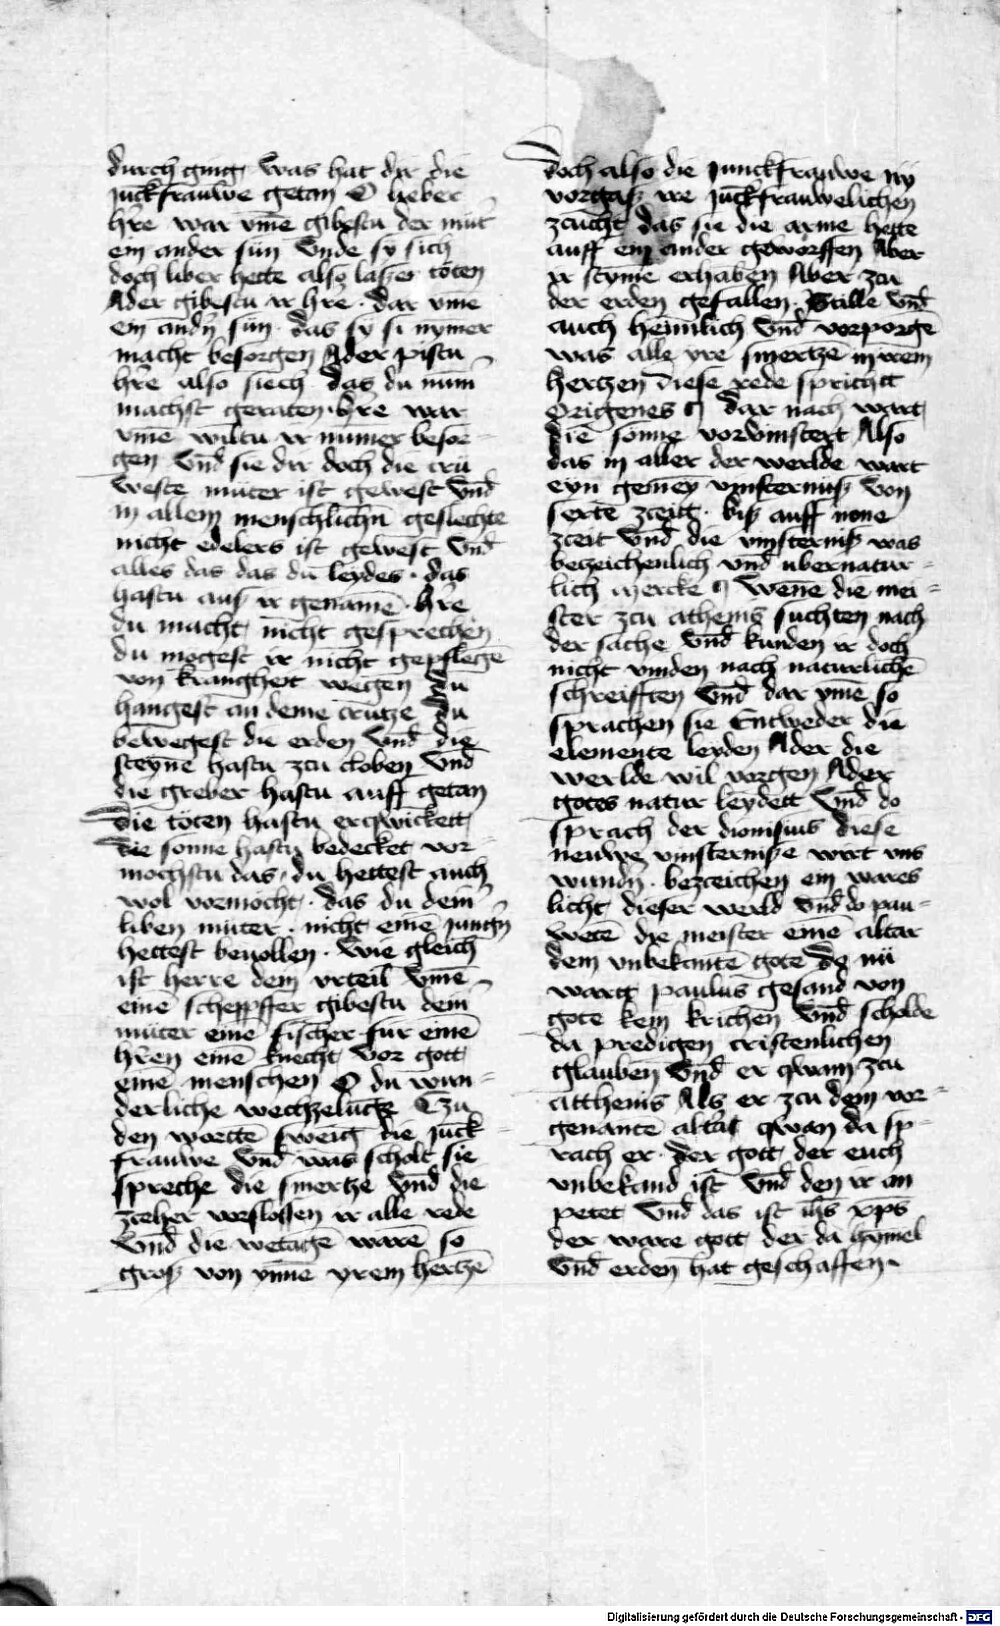 durch ging Was hat dir die
juckfrauwe getan O lieber
hre war vme gibestu der mut
ein ander sun Vnde sy sich
doch liber hette also laszen töten
Ader gibestu ir hre · dar vme
ein andn sun · das sy si nymer
macht besorgen Ader pistu
hre also siech das du nu
machst geraten · hre war
vme wiltu ir numer besor-
gen Vnd sie dir doch die trü
weste muter ist gewest Vnd
in allem menschlichn geslechte
nicht edelers ist gewest Vnd
alles das das du leydes · das
hastu aus ir genamē · hre
du macht nicht gesprechen
du mogest ir nicht gepflegē
von krangheit wegen du
hangest an deme crutze du
bewegest die erden Vnd die
steyne hastu zcu cloben Vnd
die greber hastu auff getan
Die töten hastu erqwickett
die sonne hastu bedecket vor-
mochstu das · du hettest auch
wol vormocht · das du dein
liben muter · nicht einē jungn
hettest beuollen · Wie gleich
ist herre dem vrteil Vmē
einē schepffer gibestu dein
muter einē fischer fur einē
hren einē knecht vor gott
einē menschen O du wun-
derliche wechzelūg Czu
den wortē sweig die juck-
frauwe Vnd was scholt sie
spreche die smertze Vnd die
zceher vorslossen ir alle rede
Vnd die wetagē warē so
grosz von ynnē yrem hertzē
doch also die junckfrauwe ny
vorgasz ire juckfrauwelichen
zcucht das sie die arme hette
auff ein ander geworffen Aber
ir styme erhaben Aber zcu
der erden gefallen · Stille Vnd
auch heimlich Vnd vorporgē
was alle yre smertze in irem
hertzen diese rede sprichtt
Origenes dar nach wart
die sonne vorvinstert Also
das in aller der werlde wart
eyn gemey vinsternisz Von
sexte zceitt · bisz auff none
zceit Vnd die vinsternisz was
bezeichenlich vnd ubernatur-
lich mercke Wenē die mei-
ster zcu athenis suchten nach
der sache Vnd kunden ir doch
nicht vinden nach naturlichē
schreifften Vnd dar vmē so
sprachen sie Entweder die
elemente leyden Ader die
werlde wil vorgen Ader
gotes natur leydett Vnd do
sprach der dionisius diese
neuwe vinsternisze wirt vns
wundn · bezceichen ein wares
licht dieser werld Vnd do pau-
wetē die meister einē altar
dem vnbekantē gote Do nu
wartt paulus gesand von
gote kein krichen Vnd scholde
da predigen cristenlichen
glauben Vnd er qwam zcu
atthenis Als er zcu dem vor-
genantē altar qwan da sp-
rach er · der gott der euch
vnbekand ist Vnd den ir an
petet Vnd das ist ihs xps
der ware gott der da hymel
Vnd erden hat geschaffen ·
Digitalisierung gefördert durch die Deutsche Forschungsgemeinschaft - DFG